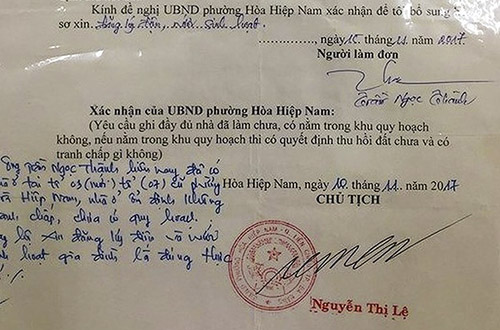 Kính đề nghị UBND phường Hòa Hiệp Nam xác nhận để tôi bổ sung
sơ xin. đăng ký điện, nước sinh hoạt
, ngày 10 tháng 11 năm 2017
Người làm đơn
Trần Ngọc Thành
Xác nhận của UBND phường Hòa Hiệp Nam:
(Yêu cầu ghi đầy đủ nhà đã làm chưa, có nằm trong khu quy hoạch
không, nếu nằm trong khu quy hoạch thì có quyết định thu hồi đất chưa và có
tranh chấp gì không)
Ông Trần Ngọc Thành hiện nay đã có
tại tổ 03 (mới) tổ (07) cũ phường
Hiệp Nam, nhà ở ổn định không
tranh chấp, chưa có quy hoạch.
Hòa Hiệp Nam, ngày 10 tháng 11 năm 2017
CHỦ TỊCH
xin đăng ký điện và nước
sinh hoạt gia đình là đúng thực
Nguyễn Thị Lệ